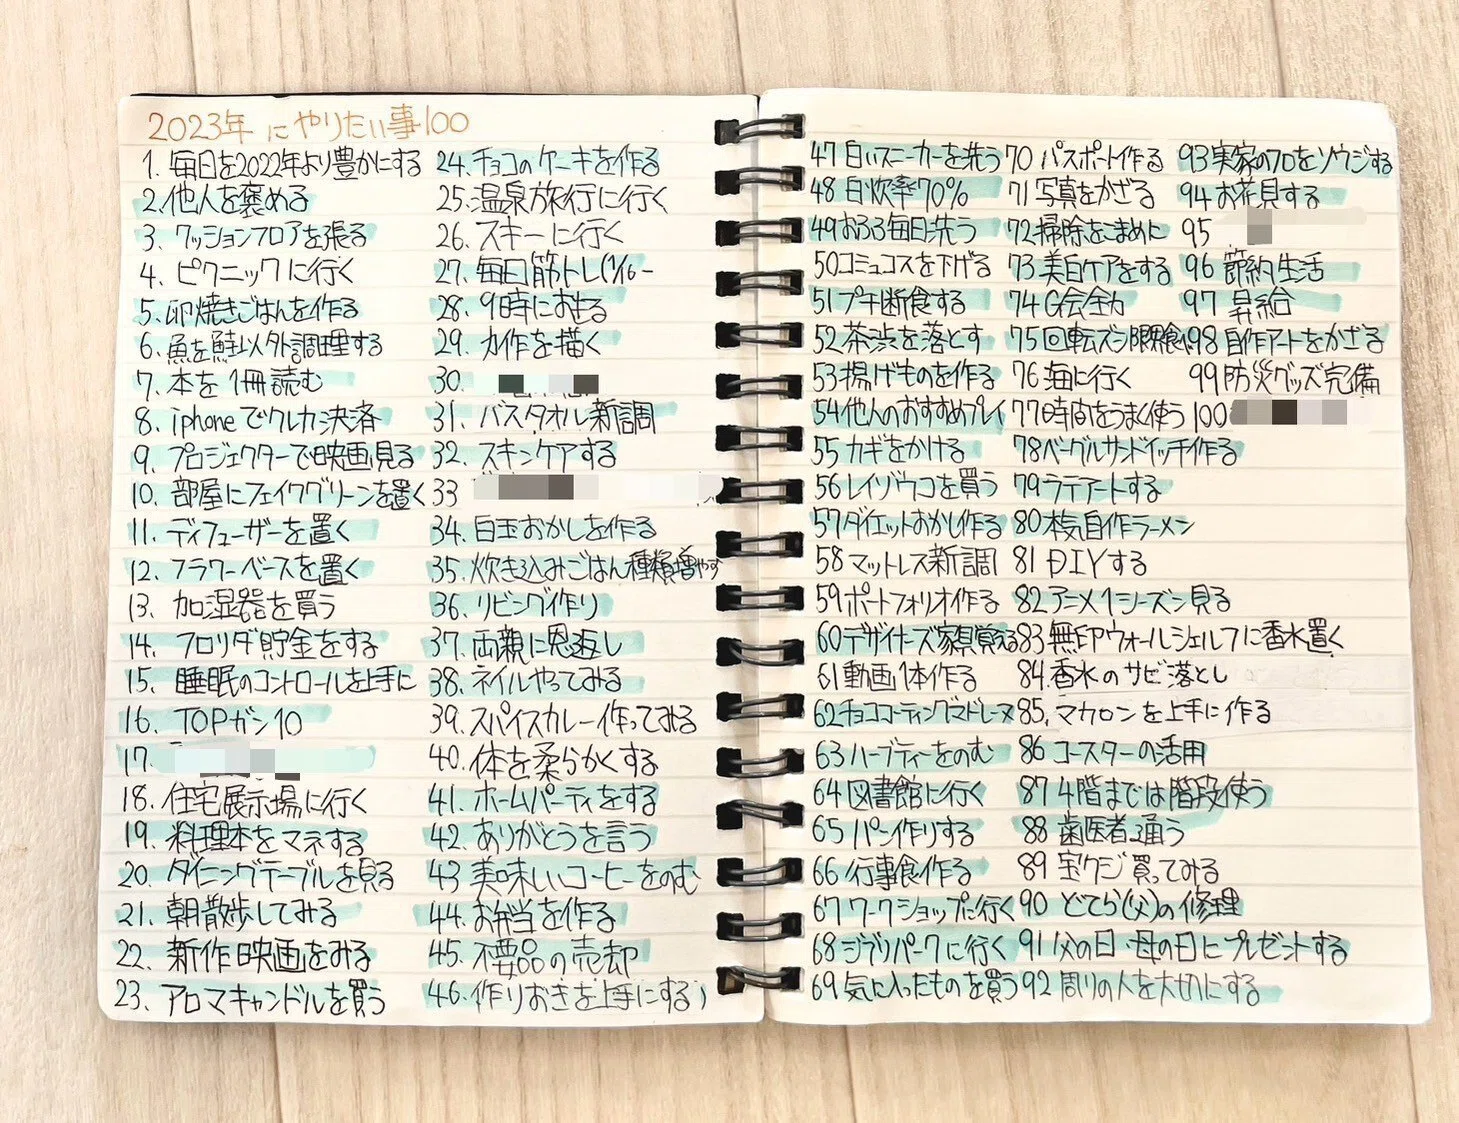 2023年にやりたい事100
1. 毎日を2022年より豊かにする
2. 他人を褒める
3. クッションフロアを張る
4. ピクニックに行く
5. 卵焼きごはんを作る
6. 魚を鮭以外調理する
7. 本を1冊読む
8. iphoneでクレカ決済
9. プロジェクターで映画見る
10. 部屋にフェイクグリーンを置く
11. ディフューザーを置く
12. フラワーベースを置く
13. 加湿器を買う
14. フロリダ貯金をする
15. 睡眠のコントロールを上手に
16. TOPガン10
17.
18. 住宅展示場に行く
19. 料理本をマネする
20. ダイニングテーブルを見る
21. 朝散歩してみる
22. 新作映画をみる
23. アロマキャンドルを買う
24. チョコのケーキを作る
25. 温泉旅行に行く
26. スキーに行く
27. 毎日筋トレ(1/16-
28. 9時におきる
29. 力作を描く
30.
31. バスタオル新調
32. スキンケアする
33
34. 白玉おかしを作る
35. 炊き込みごはん種類増やす
36. リビング作り
37. 両親に恩返し
38. ネイルやってみる
39. スパイスカレー作ってみる
40. 体を柔らかくする
41. ホームパーティをする
42. ありがとうを言う
43 美味しいコーヒーをのむ
44. お弁当を作る
45. 不要品の売却
46. 作りおきを上手にする
47 白いスニーカーを洗う
48 自炊率70%
49 おふろ毎日洗う
50 コミュコスを下げる
51 プチ断食する
52 茶渋を落とす
53 揚げものを作る
54 他人のおすすめプレイ
55 カギをかける
56 レイゾウコを買う
57 ダイエットおかし作る
58 マットレス新調
59 ポートフォリオ作る
60 デザイナーズ家具覚える
61 動画1本作る
62 チョココーティングマドレーヌ
63 ハーブティーをのむ
64 図書館に行く
65 パン作りする
66 行事食作る
67 ワークショップに行く
68 ジブリパークに行く
69 気に入ったものを買う
70 パスポート作る
71 写真をかざる
72 掃除をこまめに
73 美白ケアをする
74 G会全力
75 回転ズシ限界食べ
76 海に行く
77 時間をうまく使う
78 ベーグルサンドイッチ作る
79 ラテアートする
80 本気自作ラーメン
81 DIYする
82 アニメ1シーズン見る
83 無印ウォールシェルフに香水置く
84. 香水のサビ落とし
85. マカロンを上手に作る
86 コースターの活用
87 4階までは階段使う
88 歯医者通う
89 宝クジ買ってみる
90 どてら(父)の修理
91 父の日・母の日にプレゼントする
92 周りの人を大切にする
93 実家のフロをソウジする
94 お花見する
95
96 節約生活
97 昇給
98 自作アートをかざる
99 防災グッズ完備
100